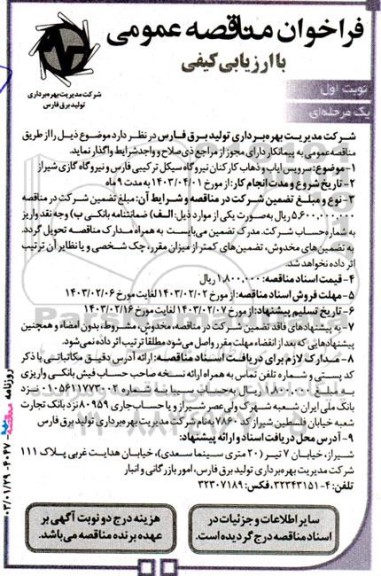 فراخوان مناقصه عمومی
با ارزیابی کیفی
شرکت مدیریت بهره‌برداری
تولید برق فارس
نوبت اول
یک مرحله‌ای
شرکت مدیریت بهره‌برداری تولید برق فارس در نظر دارد موضوع ذیل را از طریق
مناقصه عمومی به پیمانکار دارای مجوز از مراجع ذی صلاح و واجد شرایط واگذار نماید.
۱- موضوع: سرویس ایاب و ذهاب کارکنان نیروگاه سیکل ترکیبی فارس و نیروگاه گازی شیراز
۲- تاریخ شروع و مدت انجام کار: از مورخ ۱۴۰۳/۰۴/۰۱ به مدت ۹ ماه
۳- نوع و مبلغ تضمین شرکت در مناقصه و شرایط آن: مبلغ تضمین شرکت در مناقصه
۵,۶۰۰,۰۰۰,۰۰۰ ریال به‌صورت یکی از موارد ذیل: الف) ضمانتنامه بانکی ب) وجه نقد واریز
به شماره حساب شرکت. مدرک تضمین می‌بایست به همراه مدارک مناقصه تحویل گردد.
به تضمین های مخدوش، تضمین های کمتر از میزان مقرر، چک شخصی و یا نظایر آن ترتیب
اثر داده نخواهد شد.
۴- قیمت اسناد مناقصه: ۱,۸۰۰,۰۰۰ ریال
۵- مهلت فروش اسناد مناقصه: از مورخ ۱۴۰۳/۰۲/۰۲ لغایت مورخ ۱۴۰۳/۰۲/۰۶
۶- تاریخ تسلیم پیشنهاد: از مورخ ۱۴۰۳/۰۲/۰۷ لغایت مورخ ۱۴۰۳/۰۲/۱۶
۷- به پیشنهادهای فاقد تضمین شرکت در مناقصه، مخدوش، مشروط، بدون امضاء و همچنین
پیشنهادهایی که بعد از انقضاء مهلت مقرر واصل می‌شود مطلقا ترتیب اثر داده نمی‌شود.
۸- مدارک لازم برای دریافت اسناد مناقصه: ارائه آدرس دقیق مکاتباتی با ذکر
کد پستی و شماره تلفن تماس به همراه ارائه نسخه صاحب حساب فیش بانکی واریزی
به مبلغ ۱,۸۰۰,۰۰۰ ریال به حساب سیبا به شماره ۰۱۰۵۶۱۱۷۷۳۰۰۲ نزد
بانک ملی ایران شعبه شهرک ولی عصر شیراز و یا حساب جاری ۸۰۹۵۹ نزد بانک تجارت
شعبه خیابان فلسطین شیراز کد ۷۸۶۰ به نام شرکت مدیریت بهره‌برداری تولید برق فارس
۹- آدرس محل دریافت اسناد و ارائه پیشنهاد:
شیراز، خیابان ۷ تیر (۲۰ متری سینما سعدی)، خیابان هدایت غربی پلاک ۱۱۱
شرکت مدیریت بهره‌برداری تولید برق فارس، امور بازرگانی و انبار
تلفن: ۴-۳۲۳۴۳۱۵۱، فکس: ۳۲۳۰۷۱۸۹
سایر اطلاعات و جزئیات در
اسناد مناقصه درج گردیده است.
هزینه درج دو نوبت آگهی بر
عهده برنده مناقصه می‌باشد.